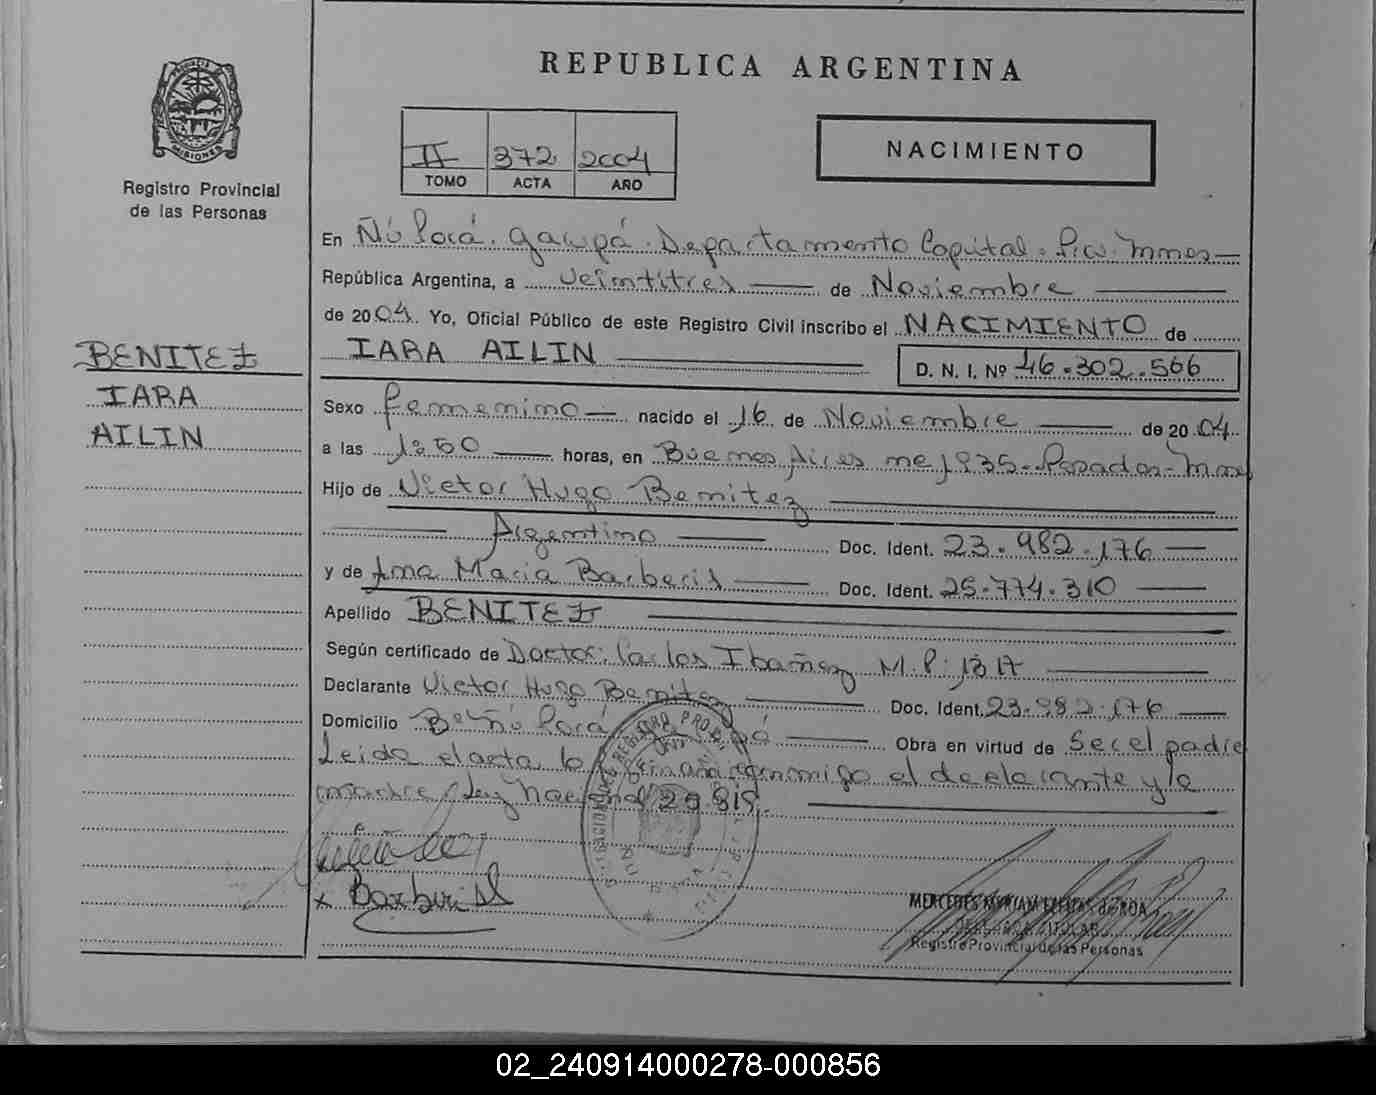 REPUBLICA ARGENTINA
PROVINCIA DE MISIONES
Registro Provincial
de las Personas
II 372 2004
TOMO ACTA AÑO
NACIMIENTO
En Ñú Porá. Garupá. Departamento Capital. Mnes
República Argentina, a veintitres de Noviembre
de 2004. Yo, Oficial Público de este Registro Civil inscribo el NACIMIENTO de
IARA AILIN D. N. I. Nº 46.302.566
BENITEZ
IARA
AILIN
Sexo femenino nacido el 16 de Noviembre de 2004
a las horas, en Buenos Aires Posadas-Mnes
Hijo de Victor Hugo Benitez
Argentino Doc. Ident. 23.982.176
y de Ana Maria Barberis Doc. Ident. 25.774.310
Apellido BENITEZ
Según certificado de Doctor: Carlos Ibañez M.P:
Declarante Victor Hugo Benitez Doc. Ident. 23.982.176
Domicilio Bº Ñú Porá Obra en virtud de Ser el padre
Leida el acta la firman conmigo el declarante y la
madre, Ley Nacional
Barberis
MERCEDES MYRIAM de ROA
DELEGADA TITULAR
Registro Provincial de las Personas
02_240914000278-000856